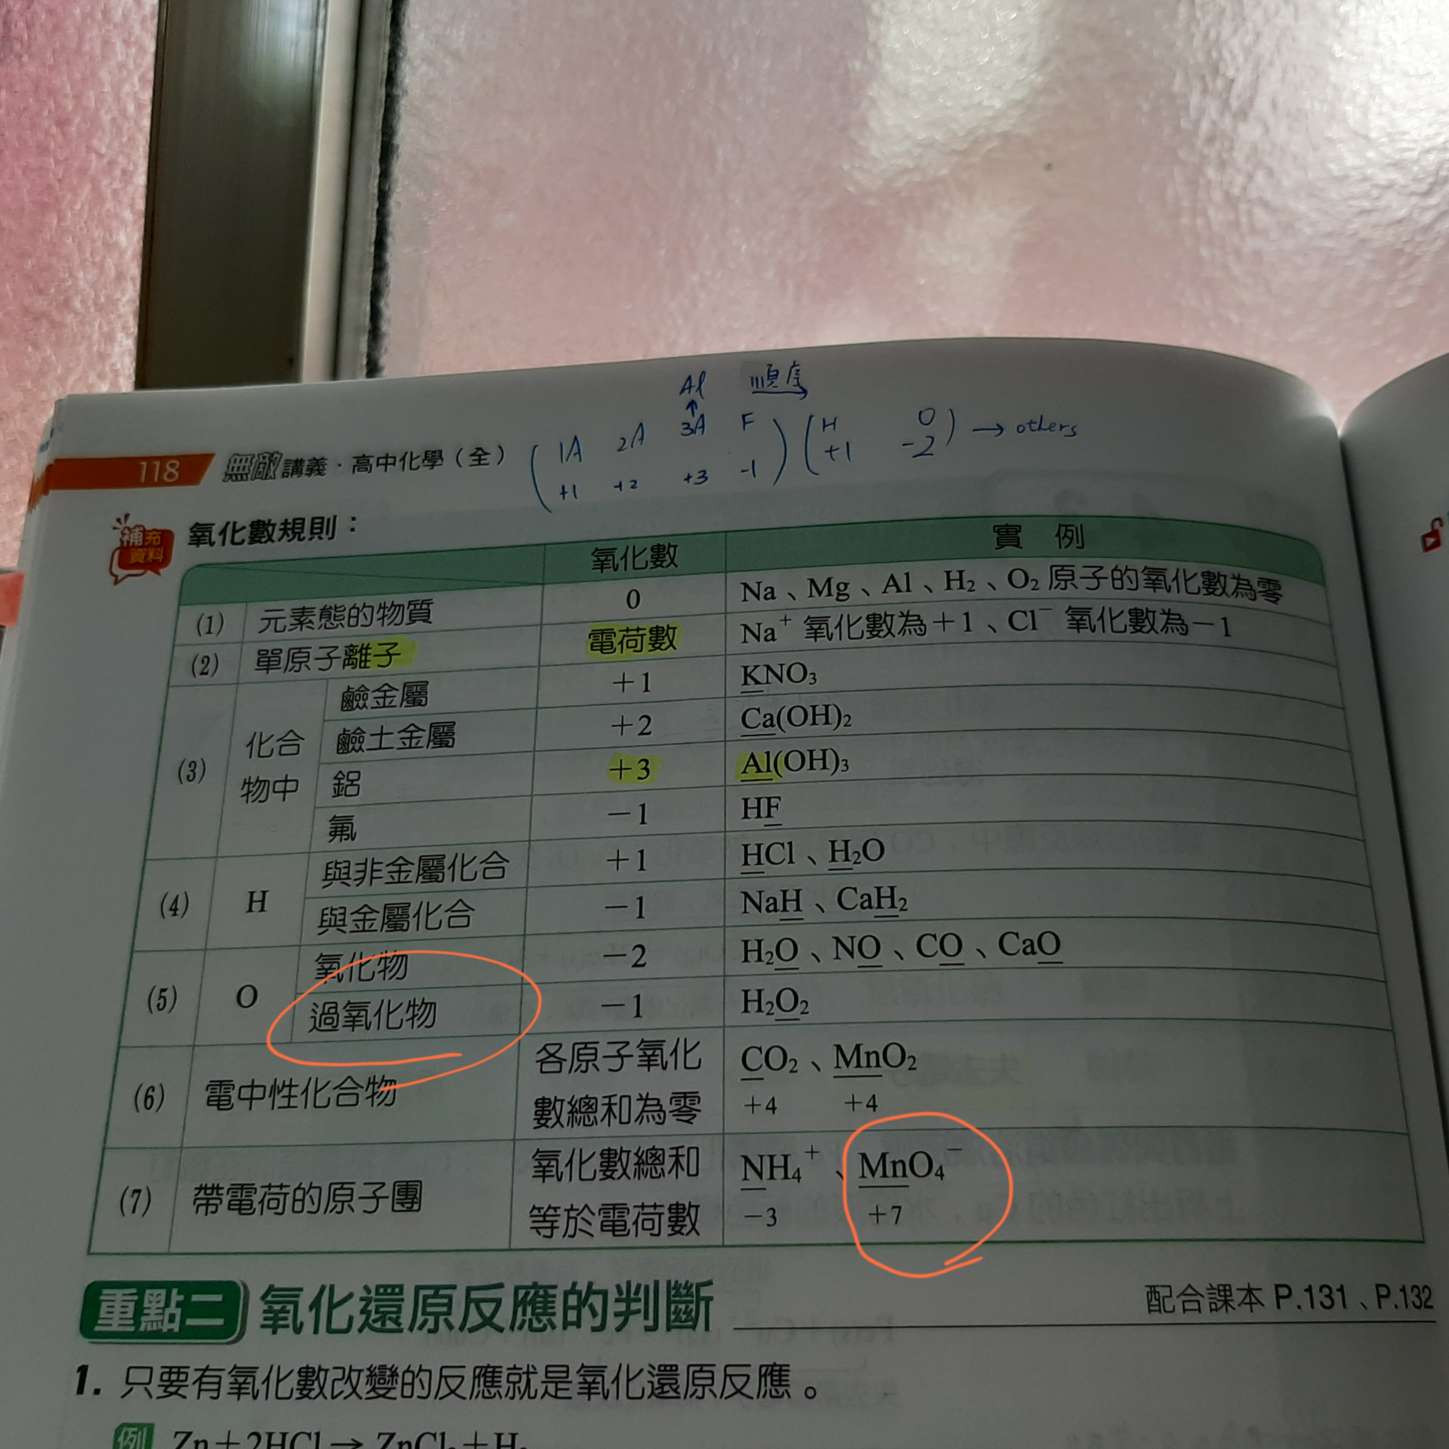 Al 順序
1A 2A 3A F H O → others
+1 +2 +3 -1 +1 -2
118 無敵講義·高中化學（全）
補充資料 氧化數規則：
氧化數 實 例
(1) 元素態的物質 0 Na、Mg、Al、H₂、O₂ 原子的氧化數為零
(2) 單原子離子 電荷數 Na⁺ 氧化數為＋1、Cl⁻ 氧化數為－1
(3) 化合物中 鹼金屬 ＋1 KNO₃
鹼土金屬 ＋2 Ca(OH)₂
鋁 ＋3 Al(OH)₃
氟 －1 HF
(4) H 與非金屬化合 ＋1 HCl、H₂O
與金屬化合 －1 NaH、CaH₂
(5) O 氧化物 －2 H₂O、NO、CO、CaO
過氧化物 －1 H₂O₂
(6) 電中性化合物 各原子氧化 CO₂、MnO₂
數總和為零 ＋4 ＋4
(7) 帶電荷的原子團 氧化數總和 NH₄⁺、MnO₄⁻
等於電荷數 －3 ＋7
重點二 氧化還原反應的判斷 配合課本 P.131、P.132
1. 只要有氧化數改變的反應就是氧化還原反應。
例 Zn＋2HCl→ZnCl₂＋H₂